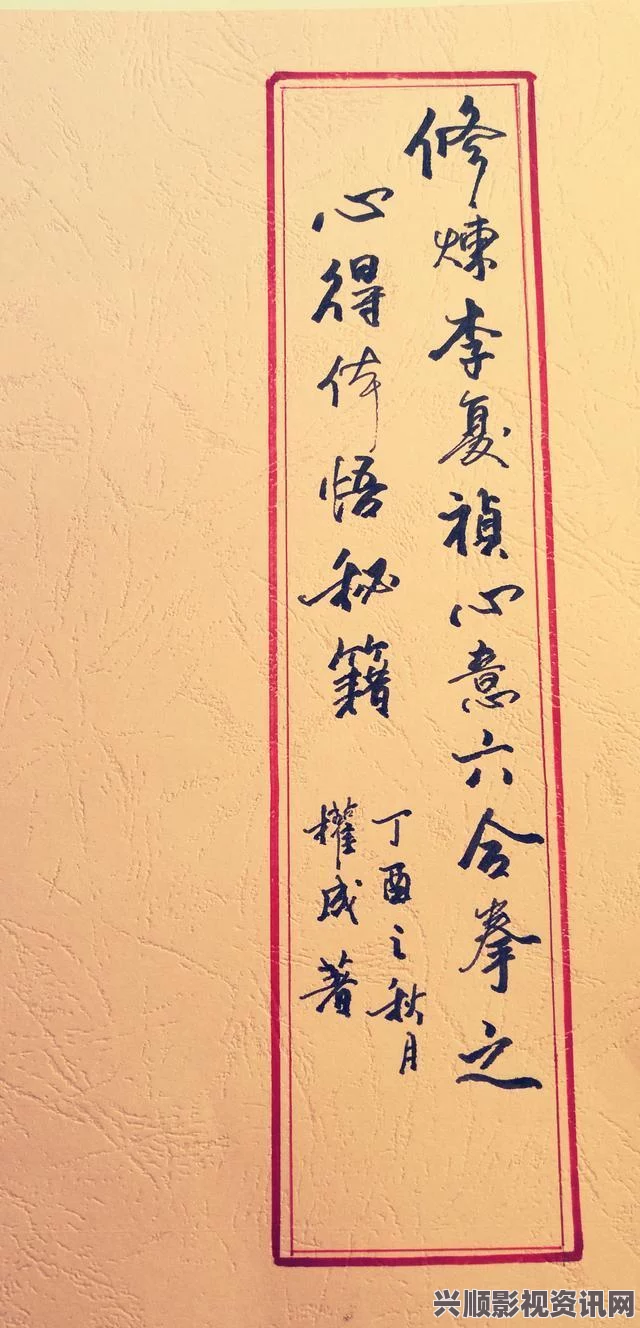 修煉李复禎心意六合拳之
心得体悟秘籍
丁酉之秋月
權成著
兴顺影视资讯网